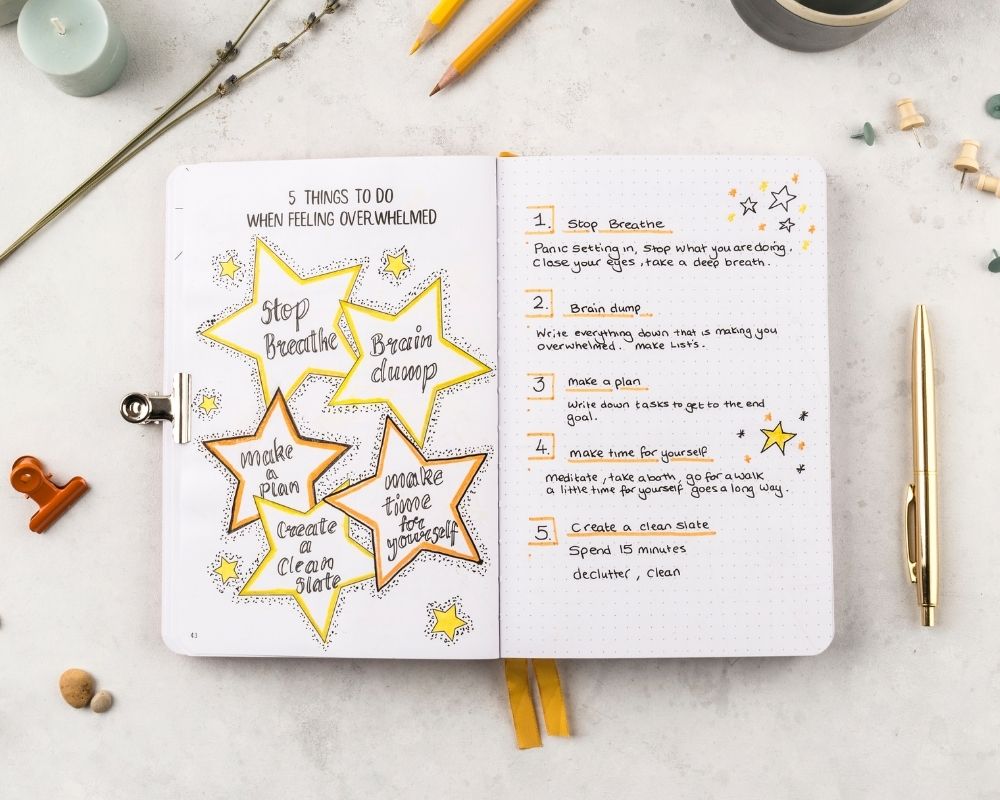 5 THINGS TO DO
WHEN FEELING OVERWHELMED
Stop
Breathe
Brain
dump
make
a
plan
make
time
for
yourself
Create
a
Clean
Slate
43
1. Stop Breathe
Panic setting in, stop what you are doing.
Close your eyes, take a deep breath.
2. Brain dump
Write everything down that is making you
overwhelmed. make List's.
3 make a plan
Write down tasks to get to the end
goal.
4. make time for yourself
meditate, take a bath, go for a walk
a little time for yourself goes a long way.
5. Create a clean slate
Spend 15 minutes
declutter, clean